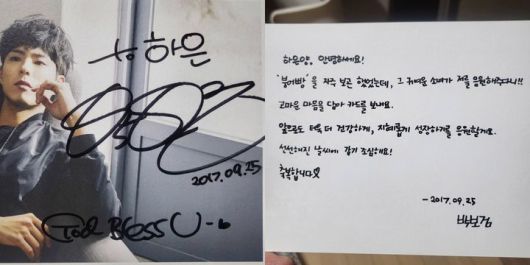 to 하은
2017.09.25
God Bless U
하은양, 안녕하세요!
'붕어빵'을 자주 보곤 했었는데, 그 귀여운 소녀가 저를 응원해주다니!!
고마운 마음을 담아 카드를 보내요.
앞으로도 더욱 더 건강하게, 지혜롭게 성장하기를 응원할게요.
선선해진 날씨에 감기 조심해요!
축복합니다
-2017.09.25
박보검